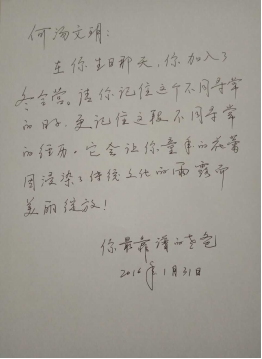 何汤文明：
在你生日那天，你加入了
冬令营。请你记住这个不同寻常
的日子，更记住这段不同寻常
的经历。它会让你童年的花蕾
因浸染了传统文化的雨露而
美丽绽放！
你最靠谱的老爸
2016年1月31日